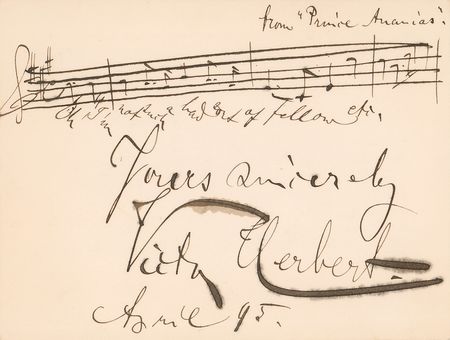 from "Prince Ananias".
such a bad sort of fellow etc.
Yours sincerely
Victor Herbert
April 95.